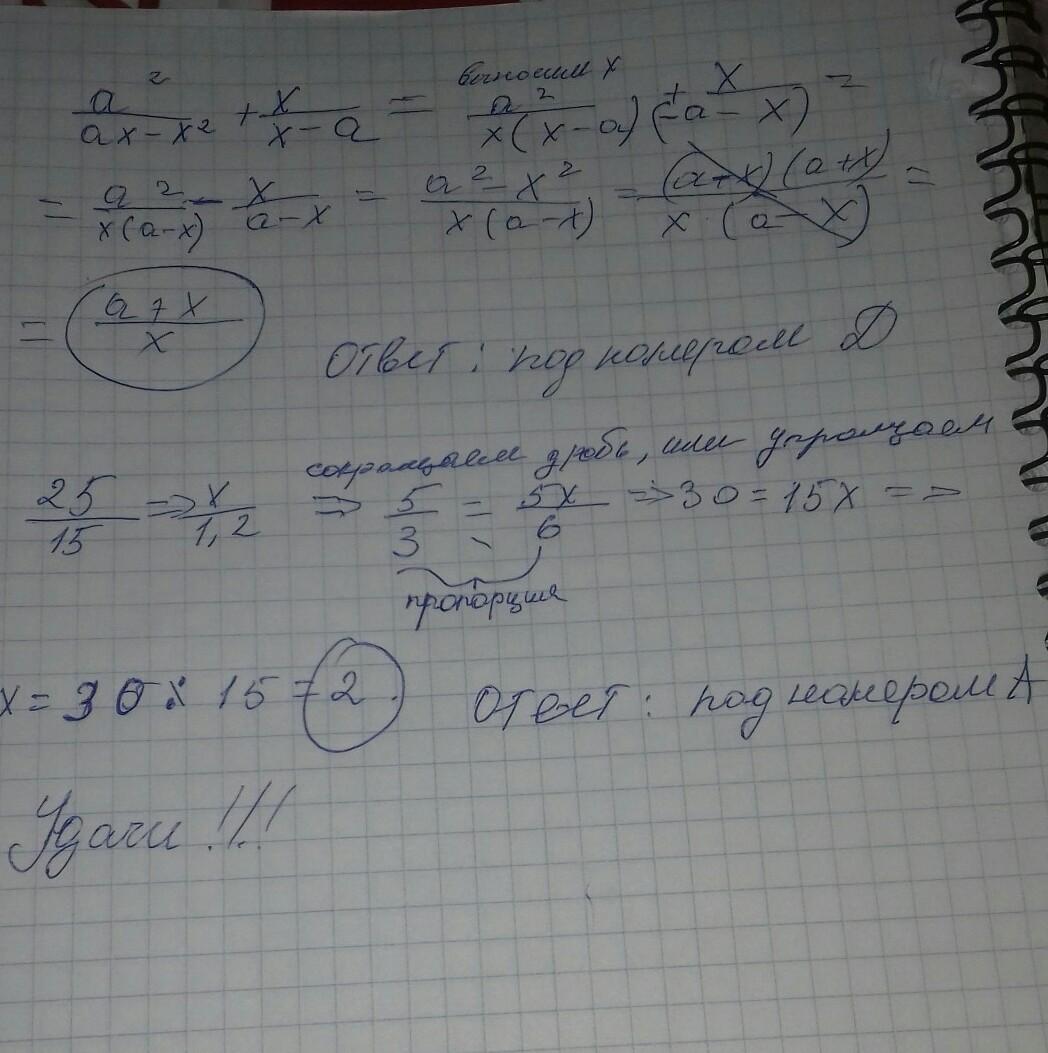 выносим x
a²/(ax-x²) + x/(x-a) = a²/(x(x-a)) + x/(-a-x) =
= a²/(x(a-x)) - x/(a-x) = (a²-x²)/(x(a-x)) = (a+x)(a+x)/(x·(a-x)) =
= (a+x)/x Ответ: под номером D
сокращаем дробь, или упрощаем
25/15 => x/1,2 => 5/3 = 5x/6 => 30=15x =>
пропорция
x = 30 : 15 = 2. Ответ: под номером A
Удачи!!!